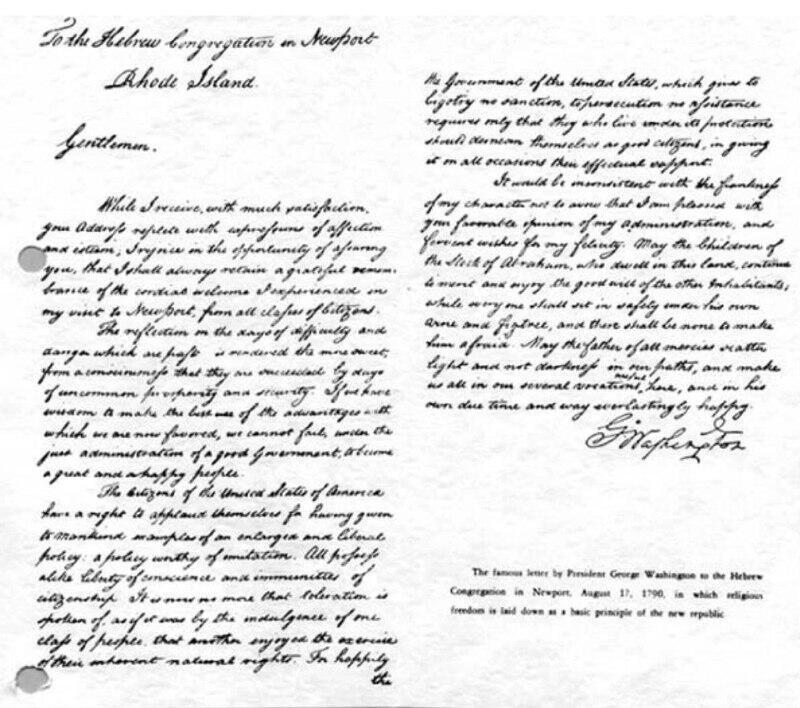 To the Hebrew Congregation in Newport
Rhode Island.
Gentlemen.
While I receive, with much satisfaction,
your Address replete with expressions of affection
and esteem; I rejoice in the opportunity of assuring
you, that I shall always retain a grateful remem-
brance of the cordial welcome I experienced in
my visit to Newport, from all classes of Citizens.
The reflection on the days of difficulty and
danger which are past is rendered the more sweet,
from a consciousness that they are succeeded by days
of uncommon prosperity and security. If we have
wisdom to make the best use of the advantages with
which we are now favored, we cannot fail, under the
just administration of a good Government, to become
a great and a happy people.
The Citizens of the United States of America
have a right to applaud themselves for having given
to mankind examples of an enlarged and liberal
policy: a policy worthy of imitation. All possess
alike liberty of conscience and immunities of
citizenship It is now no more that toleration is
spoken of, as if it was by the indulgence of one
class of people, that another enjoyed the exercise
of their inherent natural rights. For happily
the
the Government of the United States, which gives to
bigotry no sanction, to persecution no assistance
requires only that they who live under its protection
should demean themselves as good citizens, in giving
it on all occasions their effectual support.
It would be inconsistent with the frankness
of my character not to avow that I am pleased with
your favorable opinion of my Administration, and
fervent wishes for my felicity. May the Children of
the Stock of Abraham, who dwell in this land, continue
to merit and enjoy the good will of the other Inhabitants;
while every one shall sit in safety under his own
vine and figtree, and there shall be none to make
him afraid. May the father of all mercies scatter
light and not darkness in our paths, and make
us all in our several vocations useful here, and in his
own due time and way everlastingly happy.
G. Washington
The famous letter by President George Washington to the Hebrew
Congregation in Newport, August 17, 1790, in which religious
freedom is laid down as a basic principle of the new republic